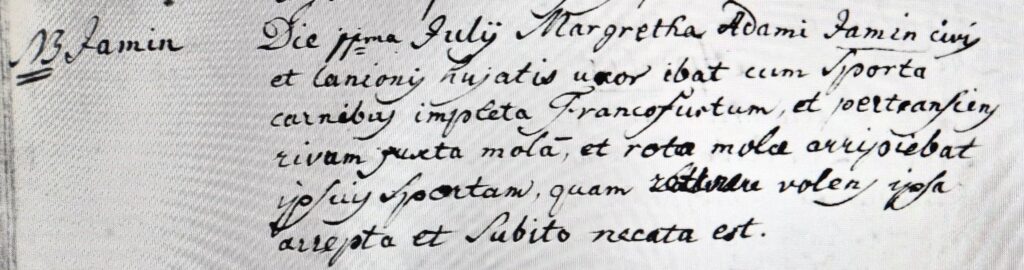 NB Jamin
Die pjma Julij Margretha Adami Jamin civis
et lanionis hujatis uxor ibat cum Sporta
carnibus impleta Francofurtum, et pertransiens
rivam juxta molã, et rota molæ arripiebat
ipsius Sportam, quam volens ipsa
arrepta et Subito necata est.